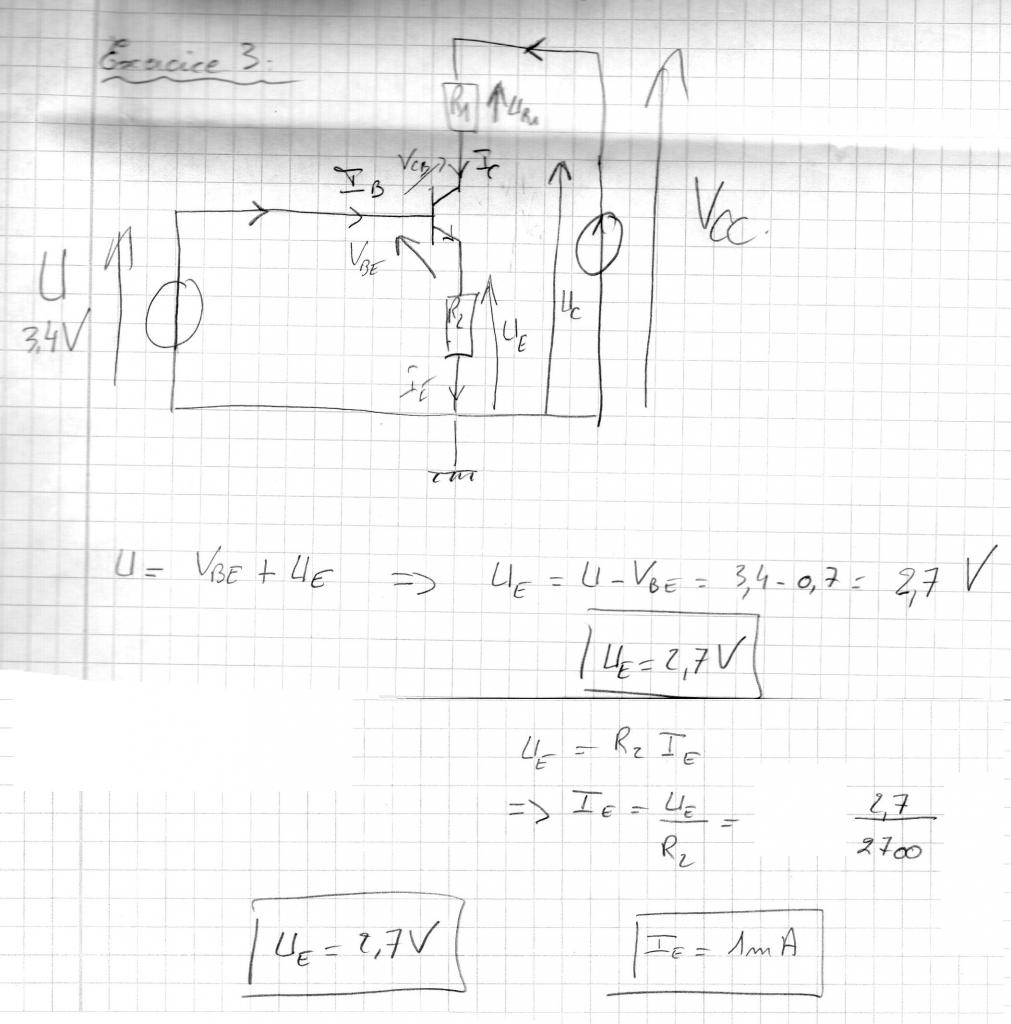 Exercice 3:
R1 U_R1
V_CB I_C
I_B
V_CC
V_BE
U
3,4V
R_2 U_E U_C
I_E
U = V_BE + U_E => U_E = U - V_BE = 3,4 - 0,7 = 2,7 V
U_E = 2,7V
U_E = R_2 I_E
=> I_E = U_E / R_2 = 2,7 / 2700
U_E = 2,7V I_E = 1mA